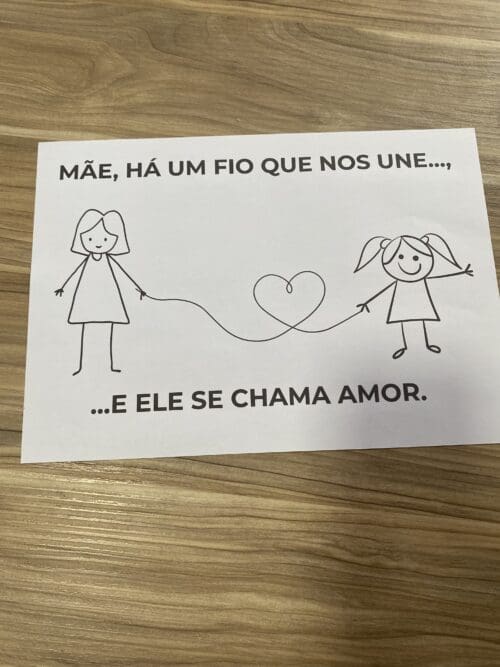 MÃE, HÁ UM FIO QUE NOS UNE...,
...E ELE SE CHAMA AMOR.